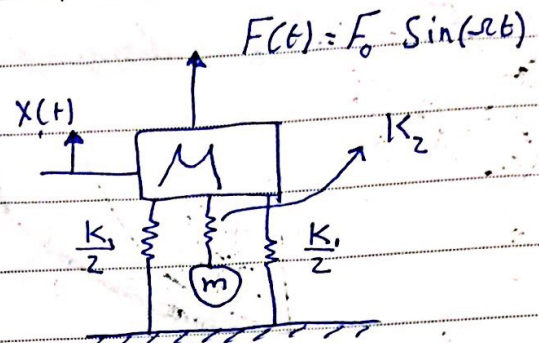 F(t) = F₀ Sin(Ωt)
X(t)
M
K₂
K₁/2
K₁/2
m